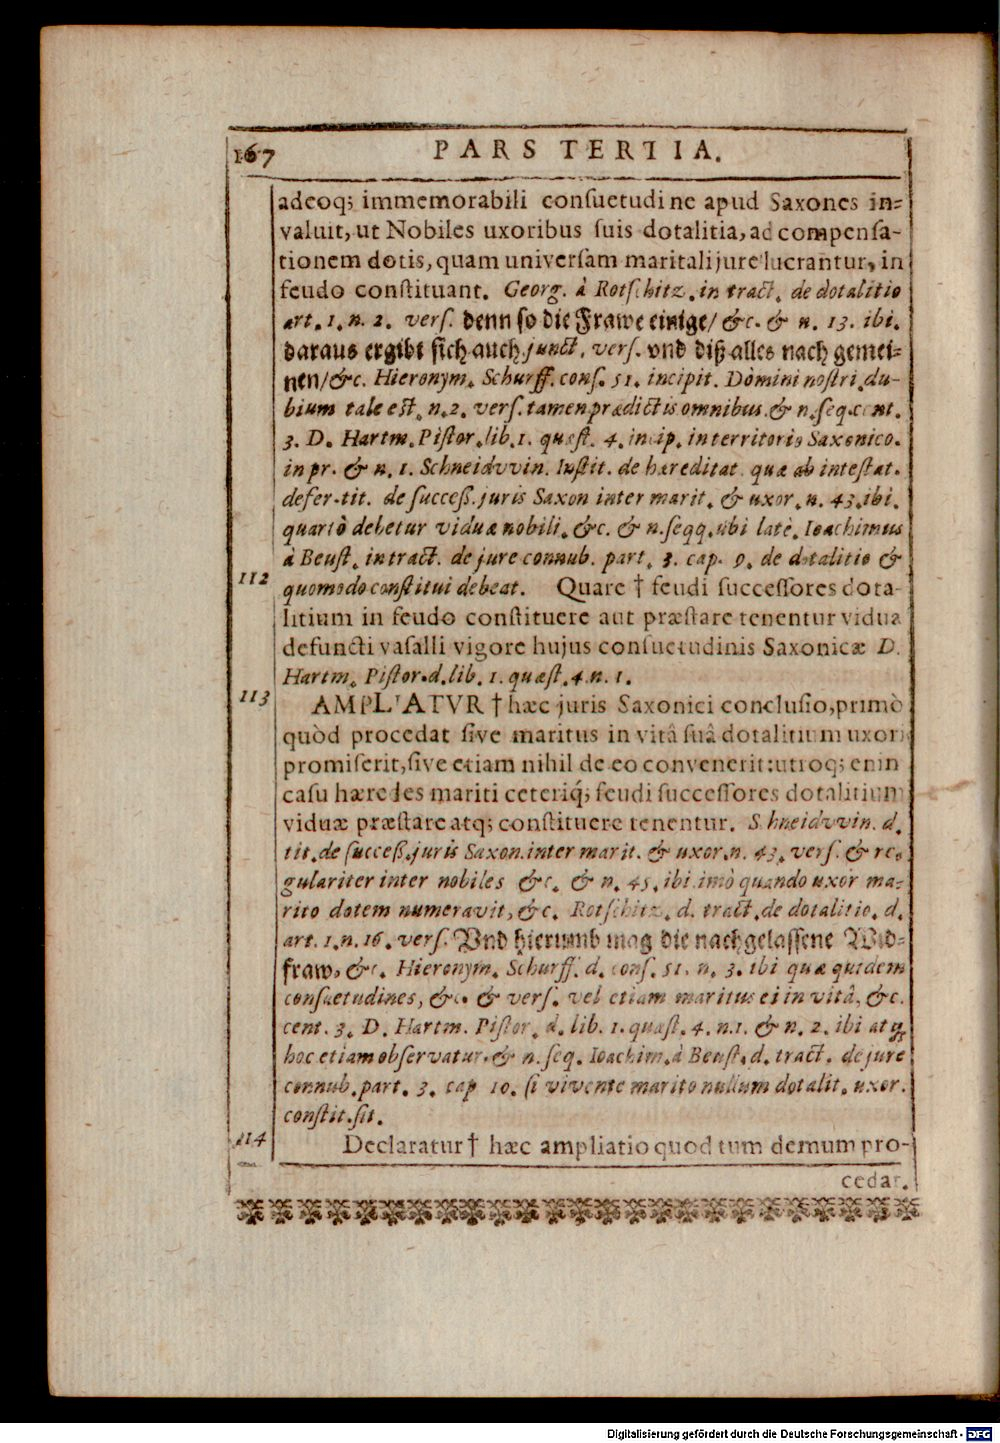 167
PARS TERTIA.
adeoq; immemorabili consuetudine apud Saxones in-
valuit, ut Nobiles uxoribus suis dotalitia, ad compensa-
tionem dotis, quam universam maritali jure lucrantur, in
feudo constituant. Georg. à Rotschitz. in tract. de dotalitio
art. 1. n. 2. vers. denn so die Frawe einige/ &c. & n. 13. ibi.
daraus ergibt sich auch junct. vers. vnd diß alles nach gemei-
nen/ &c. Hieronym. Schurff. cons. 51. incipit. Domini nostri du-
bium tale est. n. 2. vers. tamen prædictis omnibus. & n. seq. cent.
3. D. Hartm. Pistor. lib. 1. quæst. 4. incip. in territorio Saxonico.
in pr. & n. 1. Schneidvvin. Instit. de hæreditat. quæ ab intestat.
defer. tit. de success. juris Saxon inter marit. & uxor. n. 43. ibi.
quartò debetur viduæ nobili. &c. & n. seqq. ubi latè. Ioachimus
à Beust. in tract. de jure connub. part. 3. cap. 9. de dotalitio &
112
quomodo constitui debeat. Quare † feudi successores dota-
litium in feudo constituere aut præstare tenentur vidua
defuncti vasalli vigore hujus consuetudinis Saxonicæ D.
Hartm. Pistor. d. lib. 1. quæst. 4. n. 1.
113
AMPLIATVR † hæc juris Saxonici conclusio, primò
quòd procedat sive maritus in vitâ suâ dotalitium uxori
promiserit, sive etiam nihil de eo convenerit: utroq; enin
casu hæredes mariti ceteriq́; feudi successores dotalitium
viduæ præstare atq; constituere tenentur. Schneidvvin. d.
tit. de success. juris Saxon. inter marit. & uxor. n. 43. vers. & re-
gulariter inter nobiles &c. & n. 45. ibi imò quando uxor ma-
rito dotem numeravit, &c. Rotschitz. d. tract. de dotalitio. d.
art. 1. n. 16. vers. Vnd hierumb mag die nachgelassene Wid-
fraw, &c. Hieronym. Schurff. d. cons. 51. n. 3. ibi quæ quidem
consuetudines, &c. & vers. vel etiam maritus ei in vitâ, &c.
cent. 3. D. Hartm. Pistor. d. lib. 1. quæst. 4. n. 1. & n. 2. ibi atq;
hoc etiam observatur. & n. seq. Ioachim. à Beust. d. tract. de jure
connub. part. 3. cap 10. si vivente marito nullum dotalit. uxor.
constit. sit.
114
Declaratur † hæc ampliatio quod tum demum pro-
cedat.
Digitalisierung gefördert durch die Deutsche Forschungsgemeinschaft - DFG